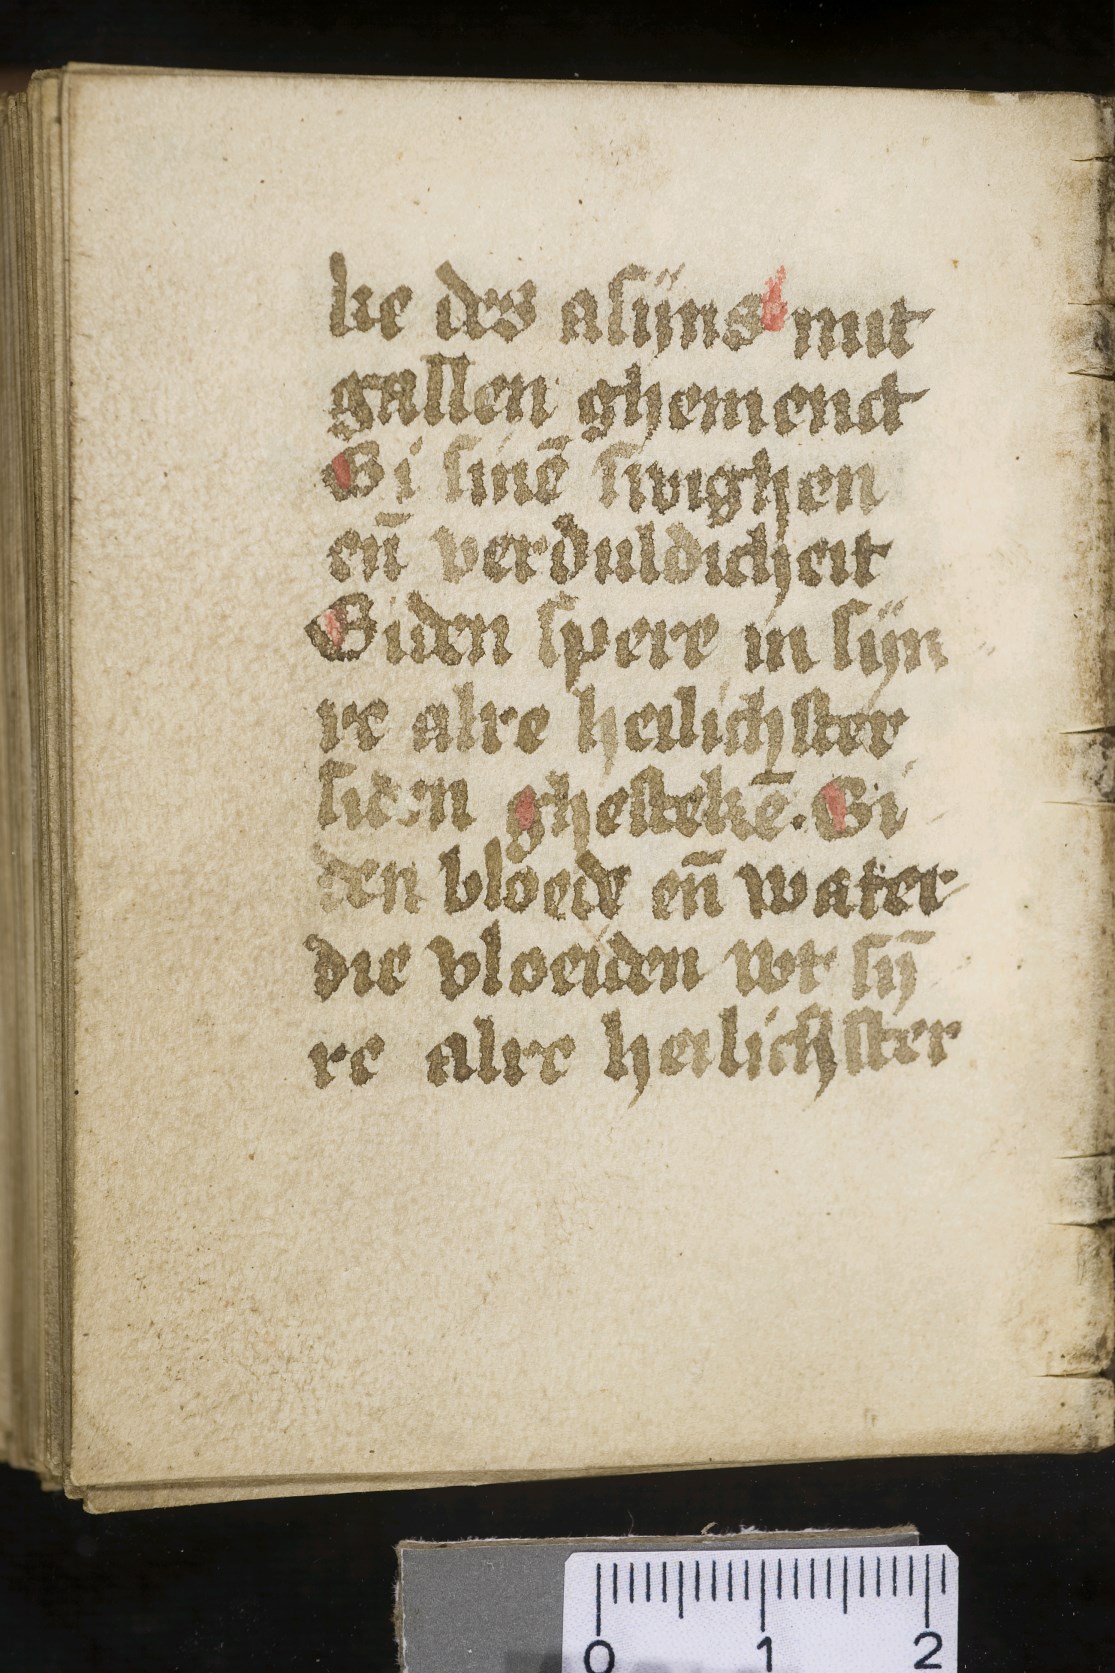 ke des asijns mit
gallen ghemenct
Bi sinē swighen
en̄ verduldicheit
Biden spere in sijn
re alre heilichster
siden ghestekē. Bi
den bloede en̄ water
die vloeiden wt sij̄
re alre heilichster
0 1 2